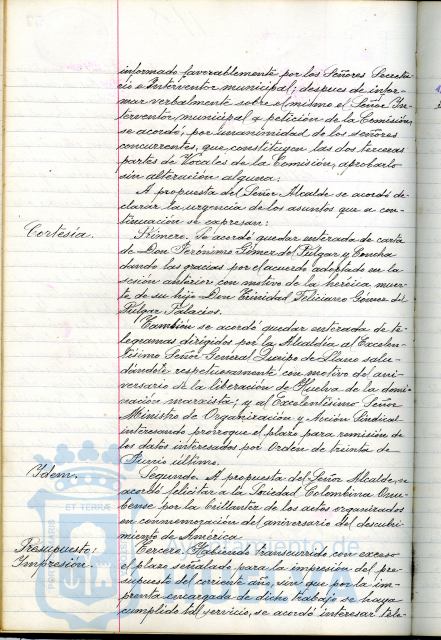 informado favorablemente por los Señores Secreta-
rio é Interventor municipal; despues de infor-
mar verbalmente sobre el mismo el Señor In-
terventor municipal a petición de la Comisión,
se acordó, por unanimidad de los señores
concurrentes, que constituyen las dos terceras
partes de Vocales de la Comisión, aprobarlo
sin alteración alguna.
A propuesta del Señor Alcalde se acordó de-
clarar la urgencia de los asuntos que a con-
tinuación se expresan:
Cortesía.
Primero. Se acordó quedar enterada de carta
de Don Jerónimo Gómez del Pulgar y Concha
dando las gracias por el acuerdo adoptado en la
sesión anterior con motivo de la heroica muer-
te de su hijo Don Trinidad Feliciano Gómez del
Pulgar Palacios.
También se acordó quedar enterada de te-
legramas dirigidos por la Alcaldía al Excelen-
tísimo Señor General Queipo de Llano salu-
dándole respetuosamente con motivo del ani-
versario de la liberación de Huelva de la domi-
nación marxista; y al Excelentísimo Señor
Ministro de Organización y Acción Sindical
interesando prorrogue el plazo para remisión de
los datos interesados por Orden de treinta de
Junio último.
Idem.
Segundo. A propuesta del Señor Alcalde, se
acordó felicitar a la Sociedad Colombina Onu-
bense por la brillantez de los actos organizados
en conmemoración del aniversario del descubri-
miento de América.
Presupuesto:
Impresión.
Tercero. Habiendo transcurrido con exceso
el plazo señalado para la impresión del pre-
supuesto del corriente año, sin que por la im-
prenta encargada de dicho trabajo se haya
cumplido tal servicio, se acordó interesar tele-
ET TERRÆ
Ayuntamiento de